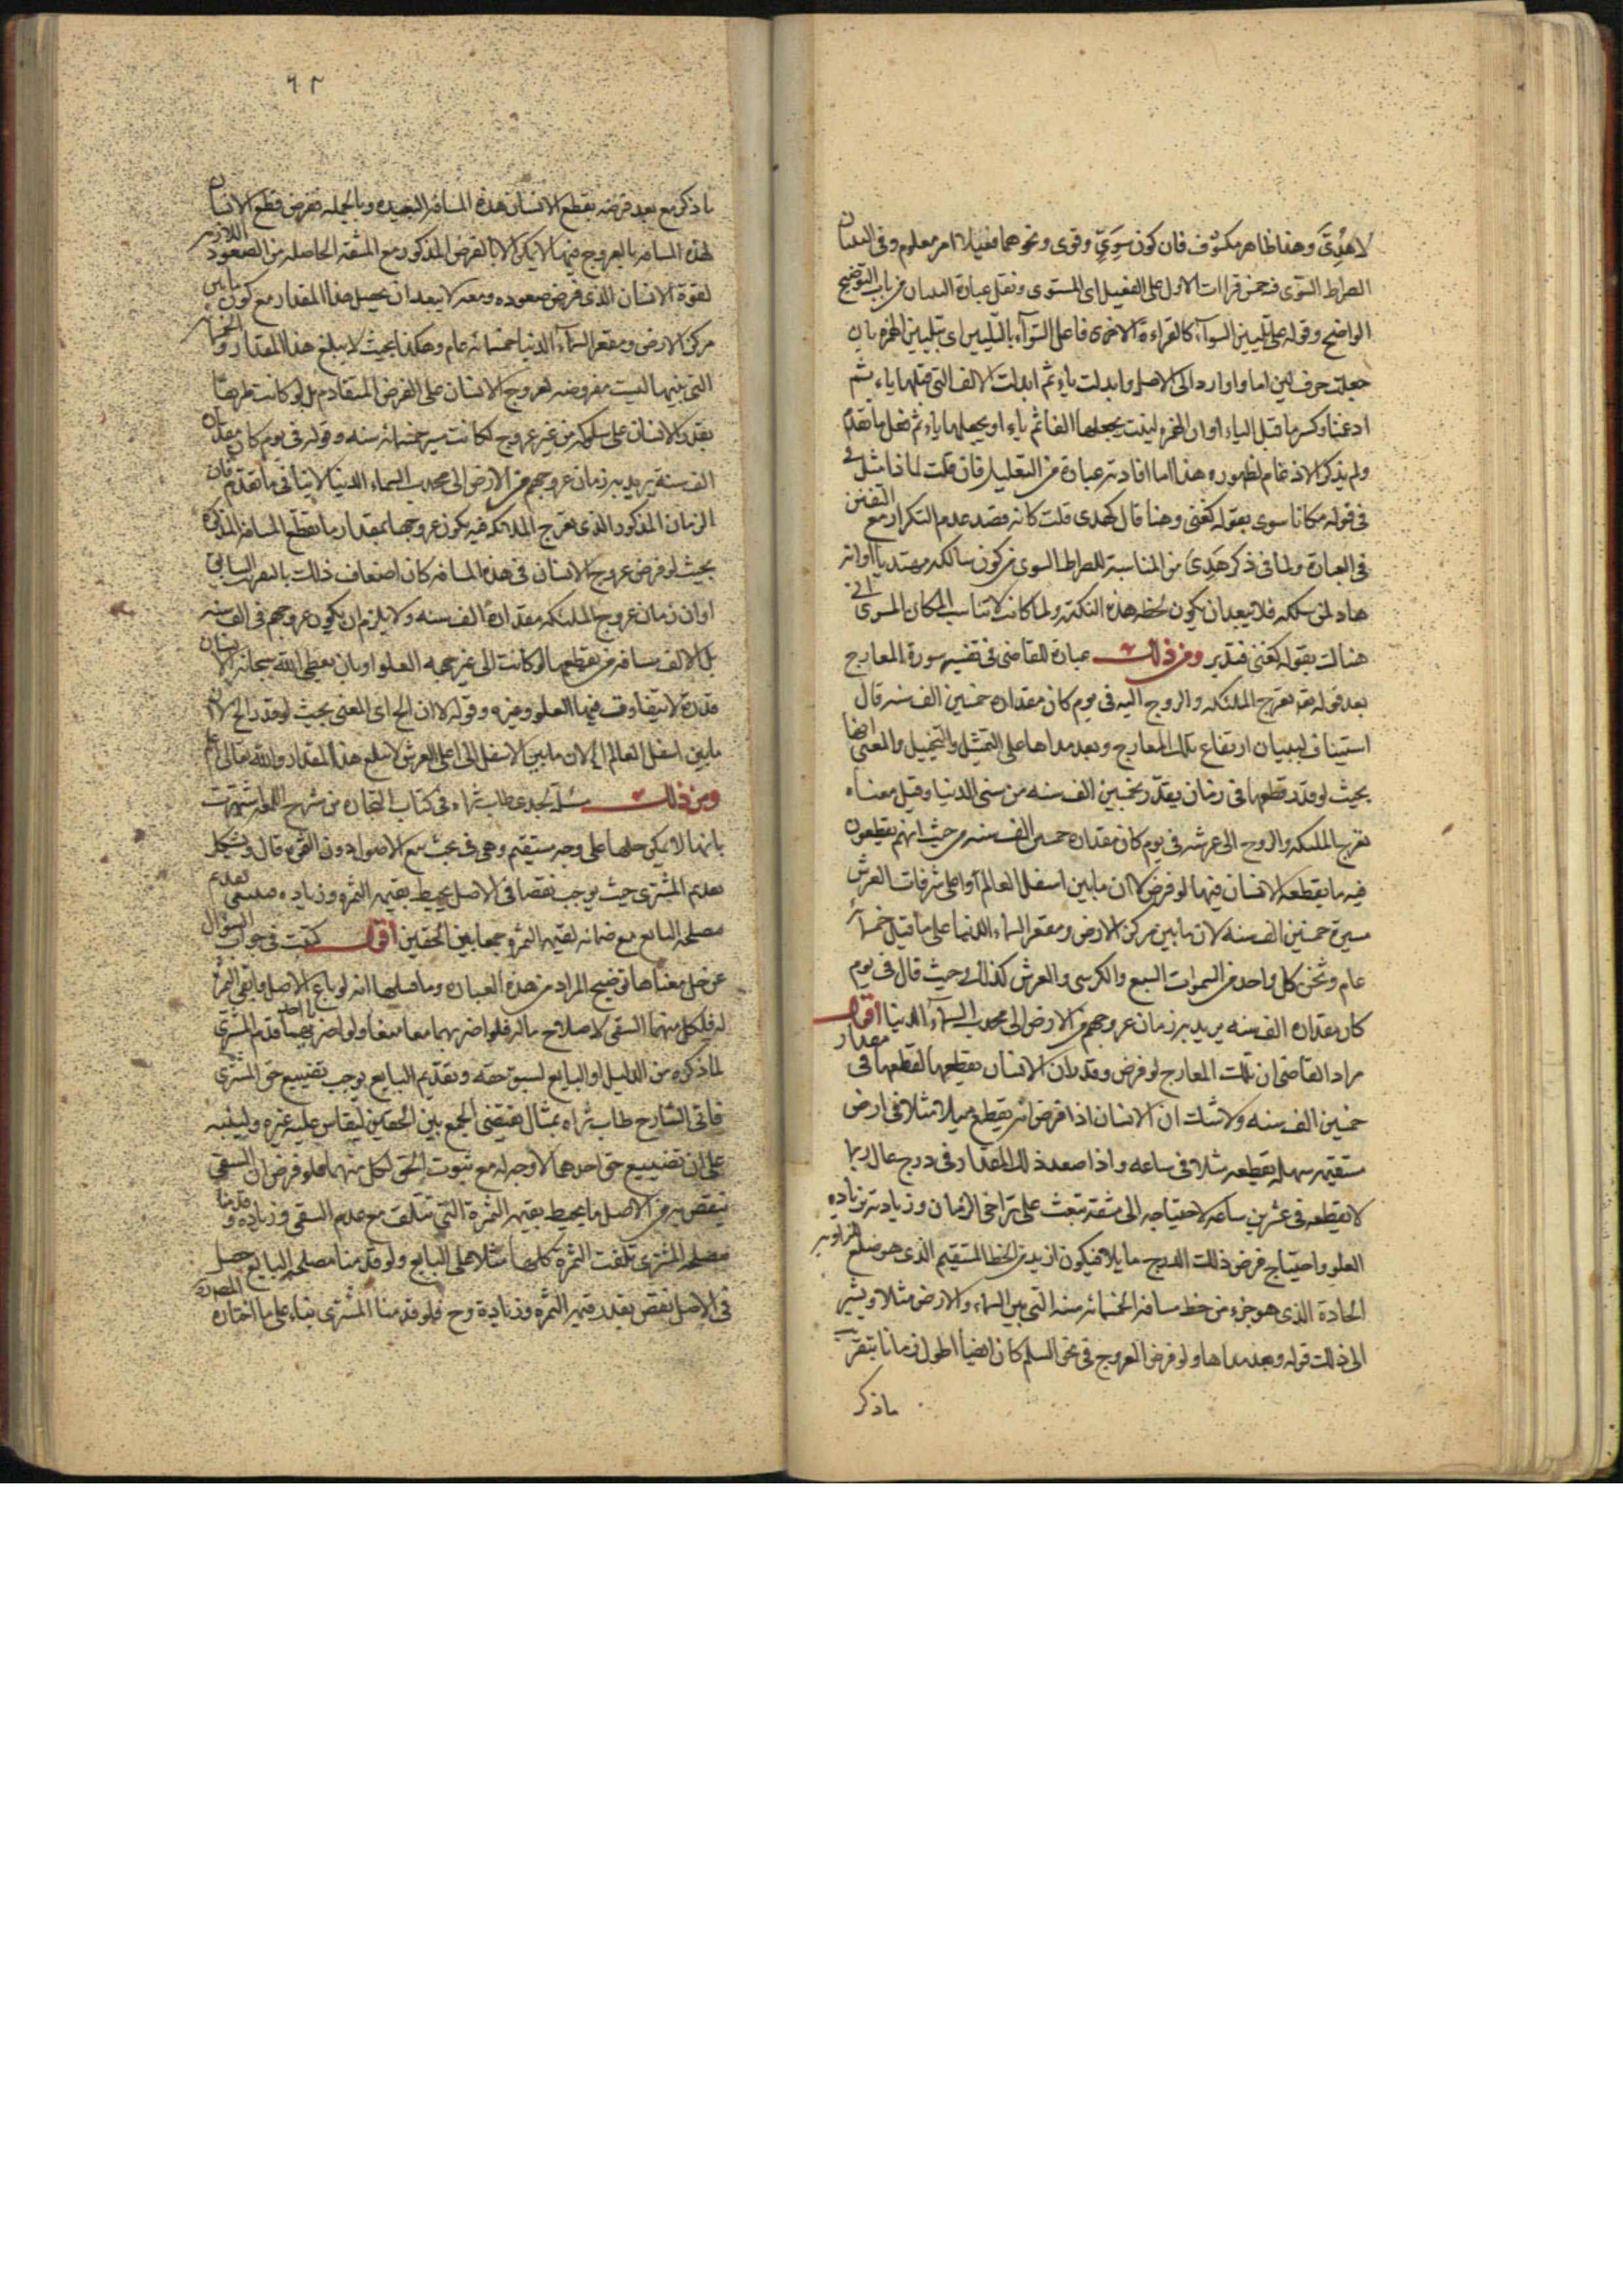 لاهدى وهذا ظاهر مكشوف فان كون سوى وقوى ونحوهما فعيلا امر معلوم وفى التبيان
الصراط السوى فيه خمس قراات الاول على الفعيل اى المستوى ونقل عبارة التبيان من باب التوضيح
الواضح وقوله على تليين السوآء كالقراءة الاخرى فاعل السوآء بالتليين اى بتليين الهمزة بان
جعلت حرف لين اما واوا رد الى الاصل وابدلت ياء ثم ابدلت الالف التى قبلها ياء ثم
ادغمنا وكسر ما قبل الياء او ان الهمزة لينت بجعلها الفا ثم ياء او بجعلها ياء ثم فعل ما تقدم
ولم يذكر الادغام لظهوره هذا ما افادته عبارة من التعليل فان قلت لماذا مثل فى
فى قوله مكانا سوى بقوله كغنى وهنا قال كهدى قلت كانه قصد عدم التكرار مع التفنن
فى العبارة ولما فى ذكر هدى من المناسبة للصراط السوى من كون سالكه مهتديا او انه
هاد لمن سلكه فلا يبعد ان يكون لحظ هذه النكتة ولما كانت لا تناسب المكان السوى اتى
هناك بقوله كغنى فتدبر ومن ذلك عبارة للقاضى فى تفسير سورة المعارج
بعد قوله تع تعرج الملئكة والروح اليه فى يوم كان مقداره خمسين الف سنة قال
استيناف لبيان ارتفاع تلك المعارج وبعد مداها على التمثيل والتخييل والمعنى انها
بحيث لو قدر قطعها فى زمان يقدر بخمسين الف سنه من سنى الدنيا وقيل معناه
تعرج الملئكة والروح الى عرشه فى يوم كان مقداره خمسين الف سنه من حيث انهم يقطعون
فيه ما يقطعه الانسان فيها لو فرض لا ان ما بين اسفل العالم واعلى شرفات العرش
مسيرة خمسين الف سنه لان ما بين مركز الارض ومقعر السماء الدنيا على ما قيل خمسمائة
عام وثخن كل واحد من السموات السبع والكرسى والعرش كذلك وحيث قال فى يوم
كان مقداره الف سنه يريد به زمان عروجهم من الارض الى محدب السمآء الدنيا اقول
مراد القاضى ان تلك المعارج لو فرض وقدر ان الانسان يقطعها لقطعها فى مقدار
خمسين الف سنه ولا شك ان الانسان اذا فرض انه يقطع ميلا مثلا فى ارض
مستقيمة سهلة يقطعه مثلا فى ساعه واذا صعد ذلك المقدار فى درج عال ربما
لا يقطعه فى عشرين ساعه لاحتياجه الى مشقة تبعث على تراخى الزمان وزيادته بزياده
العلو واحتياج فرض ذلك الدرج مايلا فيكون ازيد من الخط المستقيم الذى هو ضلع الزاويه
الحادة الذى هو جزء من خط مسافة الخمسمائة سنه التى بين السماء والارض مثلا ويشير
الى ذلك قوله وبعد مداها ولو فرض العروج فى نحو السلم كان ايضا اطول زمانا بتقريب
ما ذكر
٦٢
ما ذكر مع بعد فرضه بقطع الانسان هذه المسافة البعيده وبالجملة ففرض قطع الانسان
لهذه المسافة بالعروج فيها لا يمكن الا بالفرض المذكور مع المشقة الحاصلة من الصعود اللازمه
لقوة الانسان الذى فرض صعوده ومعه لا يبعد ان يحصل هذا المقدار مع كون ما بين
مركز الارض ومقعر السمآء الدنيا خمسمائه عام وهكذا بحيث لا يبلغ هذا المقدار والخمسمائه
التى بينهما ليست مفروضه لعروج الانسان على الفرض المتقادم بل لو كانت طريقا
يقدر الانسان على سلوكه من غير عروج لكانت مسيره خمسمائة سنه وقوله فى يوم كان مقداره
الف سنة يريد به زمان عروجهم من الارض الى محدب السماء الدنيا لا ينافى ما تقدم فان
الزمان المذكور الذى تعرج الملائكه فيه يكون عروجها بمقدار ما يقطع المسافة المذكورة
بحيث لو فرض عروج الانسان فى هذه المسافة كان اضعاف ذلك بالتقريب السابق
او ان زمان عروج الملئكه مقداره الف سنه ولا يلزم ان يكون عروجهم فى الف سنه
بل الالف مسافة من يقطعها لو كانت الى غير جهه العلو او بان يعطى الله سبحانه الانسان
قدرة لا يتفاوت فيها العلو وغيره وقوله لا ان الخ اى المعنى بحيث لو قدر الخ لا ان
ما بين اسفل العالم الخ لان ما بين الاسفل الى اعلى العرش لا يبلغ هذا المقدار والله تعالى اعلم
ومن ذلك مسئلة لجدى طاب ثراه فى كتاب التجارة من شرح اللمعه شهرت
بانها لا يمكن حلها على وجه مستقيم وهى فى بحث بيع الاصول دون الثمره قال ويشكل
تقديم المشترى حيث يوجب نقصا فى الاصل يحيط بقيمة الثمره وزياده فينبغى تقديم
مصلحة البايع مع ضمانه لقيمة الثمره جمعا بين الحقين اقول كتبت فى جواب السؤال
عن حل معناها وتوضيح المراد من هذه العبارة وما قبلها انه لو باع الاصل وابقى الثمرة
له فلكل منهما السقى لاصلاح ماله فلو اضر بهما معا منعا ولو اضر باحدهما قدم المشترى
لما ذكره من الدليل او البايع لسبق حقه وتقديم البايع يوجب تضييع حق المشترى
فاتى الشارح طاب ثراه بمثال يقتضى الجمع بين الحقين ليقاس عليه غيره ولينبه
على ان تضييع حق احدهما لا وجه له مع ثبوت الحق لكل منهما فلو فرض ان السقى
ينقص به من الاصل ما يحيط بقيمة الثمرة التى تتلف مع عدم السقى وزياده وقدمنا
مصلحة المشترى تلفت الثمرة كلها مثلا على البايع ولو قدمنا مصلحة البايع حصل
فى الاصل نقص بقدر قيمة الثمره وزيادة وح فلو قدمنا المشترى بناء على ما اختاره المصره